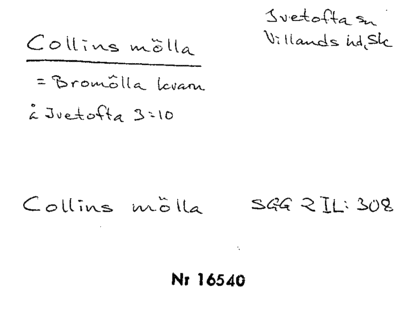 Ivetofta sn
Villands hd, Sk
Collins mölla
= Bromölla kvarn
å Ivetofta 3:10
Collins mölla SGG 2 II: 308
Nr 16540